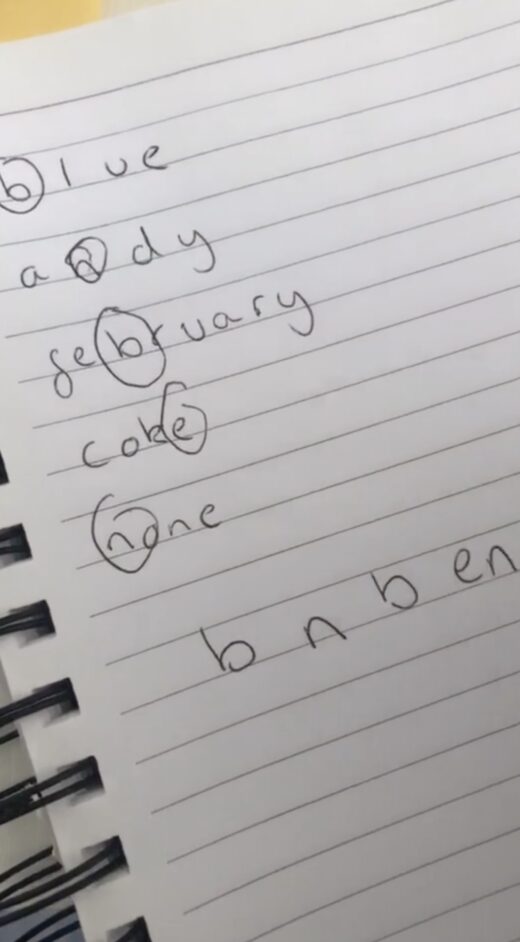 blue
andy
february
coke
none
b n b en